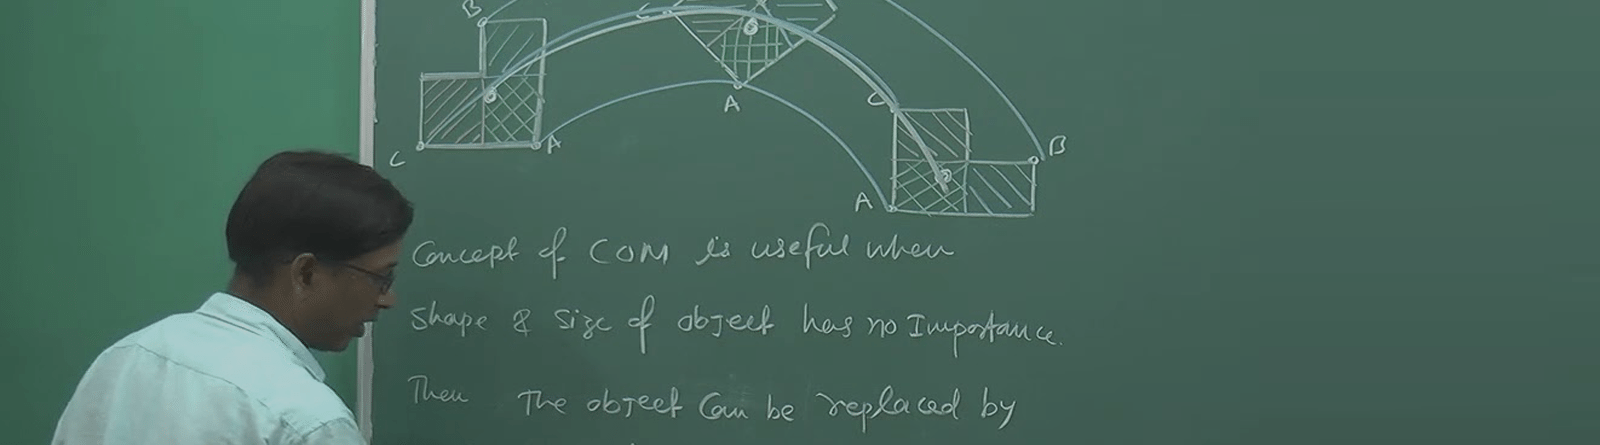 B
C
A
A
C
B
A
Concept of COM is useful when
Shape & Size of object has no Importance.
Then The object Can be replaced by